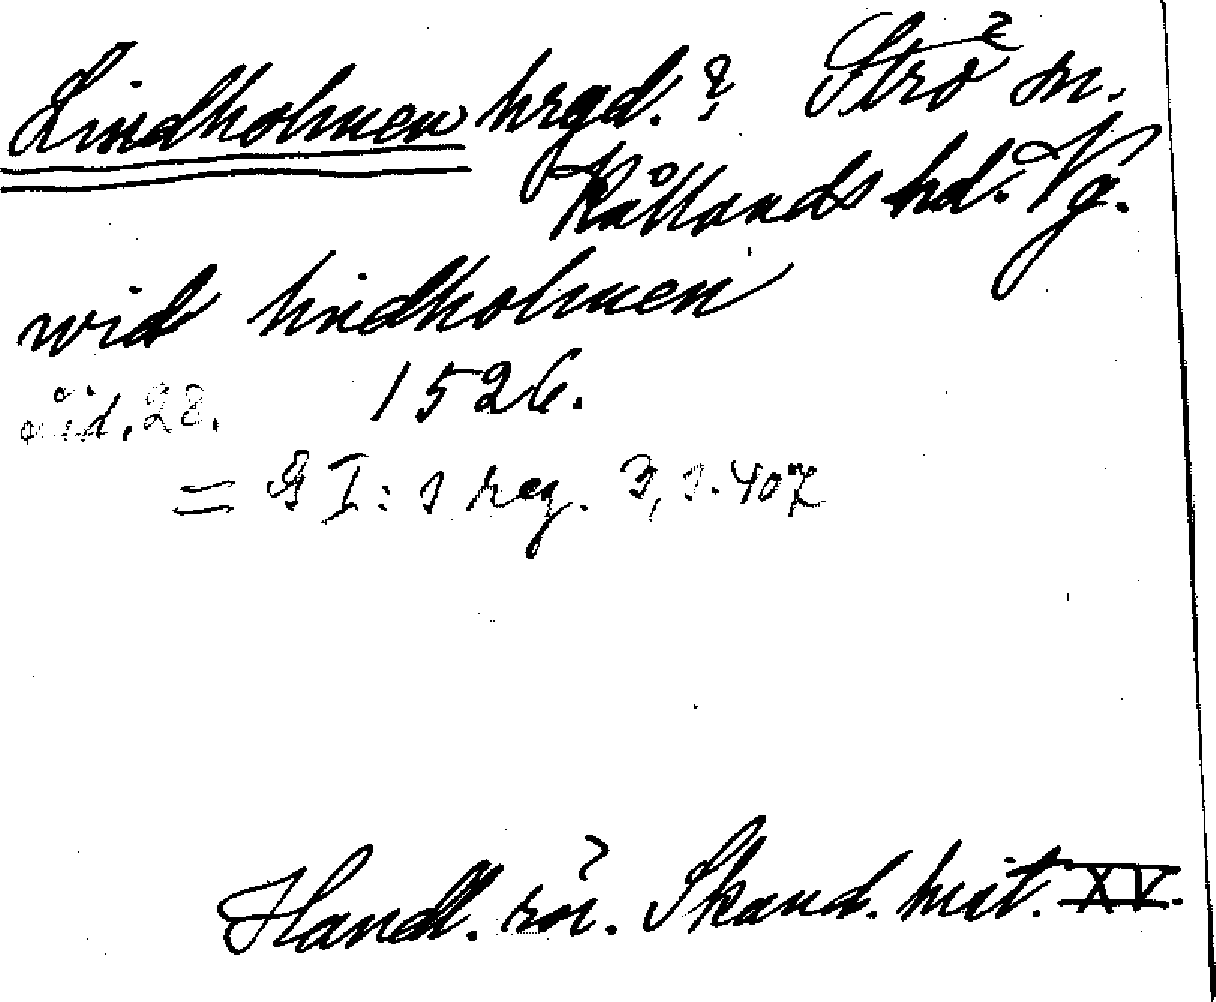 Lindholmen hrgd.? Strö sn.
Kållands hd. Vg.
wid lindholmen
1526.
sid. 28.
= G I: s reg. 3, s. 407
Handl. rör. Skand. hist. XV.